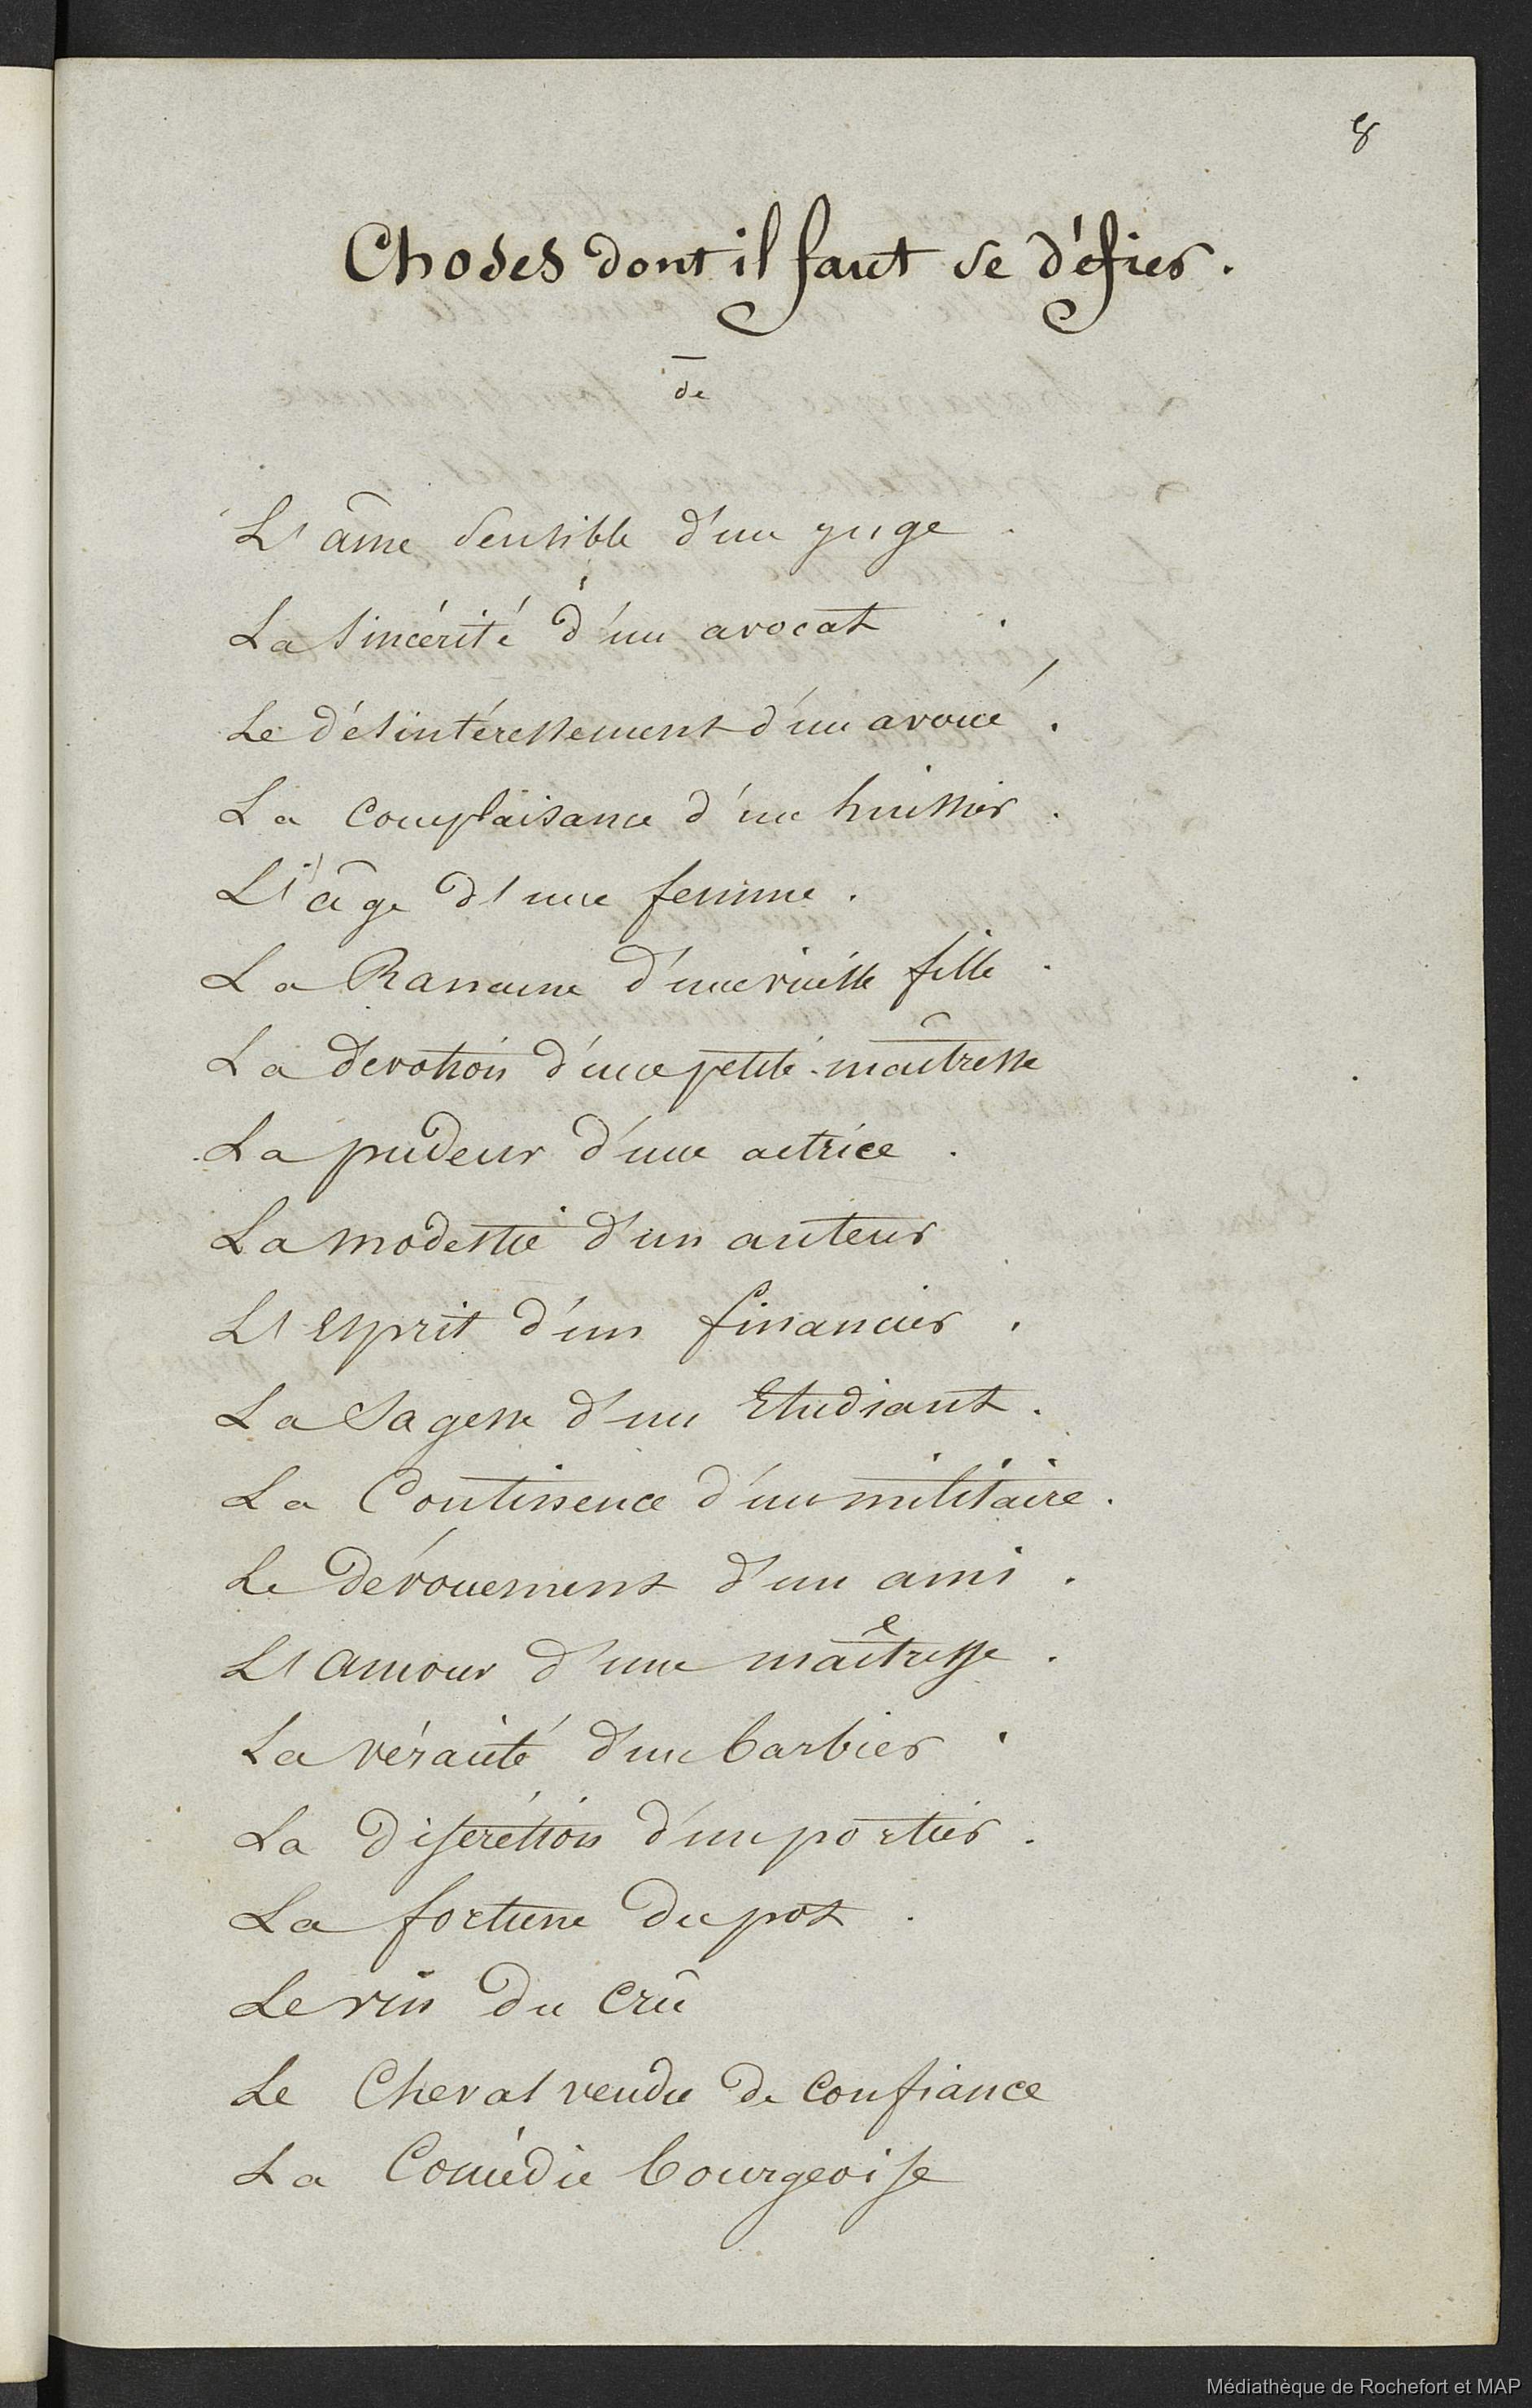 8
Choses dont il faut se défier.
de
L'âme sensible d'un juge.
La sincérité d'un avocat.
Le désintéressement d'un avoué.
La complaisance d'un huissier.
L'âge d'une femme.
La Rancune d'une vieille fille.
La devotion d'une petite-maîtresse
La pudeur d'une actrice.
La modestie d'un auteur
L'esprit d'un financier.
La Sagesse d'un Etudiant.
La Continence d'un militaire.
Le dévouement d'un ami.
L'amour d'une maîtresse.
La véracité d'un barbier.
La discrétion d'un portier.
La fortune du pot.
Le vin du crû
Le Cheval vendu de confiance
La Comédie bourgeoise
Médiathèque de Rochefort et MAP